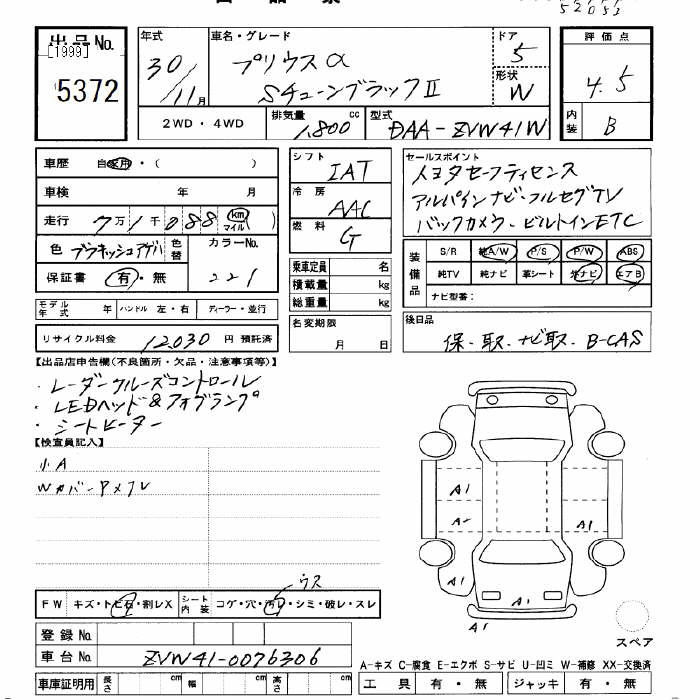 52053
出品No.
[1999]
5372
年式
30/11月
車名・グレード
プリウスα
Sチューンブラック II
ドア
5
形状
W
評価点
4.5
内装
B
2WD・4WD
排気量 1,800 cc
型式 DAA-ZVW41W
車歴 自家用・( )
車検 年 月
走行 7万1千088 km マイル
色
色替
カラーNo.
221
保証書 有・無
シフト IAT
冷房 AAC
燃料 G
乗車定員 名
積載量 kg
総重量 kg
セールスポイント
トヨタセーフティセンス
アルパインナビ・フルセグTV
バックカメラ・ビルトインETC
装備品
S/R 純A/W P/S P/W ABS
純TV 純ナビ 革シート 外ナビ エアB
ナビ型番:
モデル年式 年 ハンドル 左・右 ディーラー・並行
リサイクル料金 12,030 円 預託済
名変期限 月 日
後日品
保・取・ナビ取・B-CAS
【出品店申告欄(不良箇所・欠品・注意事項等)】
・レーダークルーズコントロール
・LEDヘッド&フォグランプ
・シートヒーター
【検査員記入】
小A
A1
A-
A1
A1
A1
A1
ウス
FW キズ・トビ石・割レX シート内装 コゲ・穴・汚レ・シミ・破レ・スレ
登録No.
車台No. ZVW41-0076306
車庫証明用 長さ cm 幅 cm 高さ cm
スペア
A-キズ C-腐食 E-エクボ S-サビ U-凹ミ W-補修 XX-交換済
工具 有・無 ジャッキ 有・無